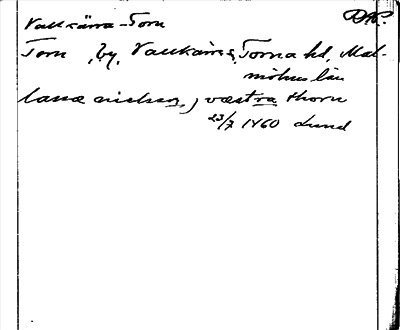 Vallkärra-Torn DP.
Torn, by, Vallkärra s, Torna hd, Mal-
möhus län
lasse nielsen, j væstra thorn
23/7 1460 Lund